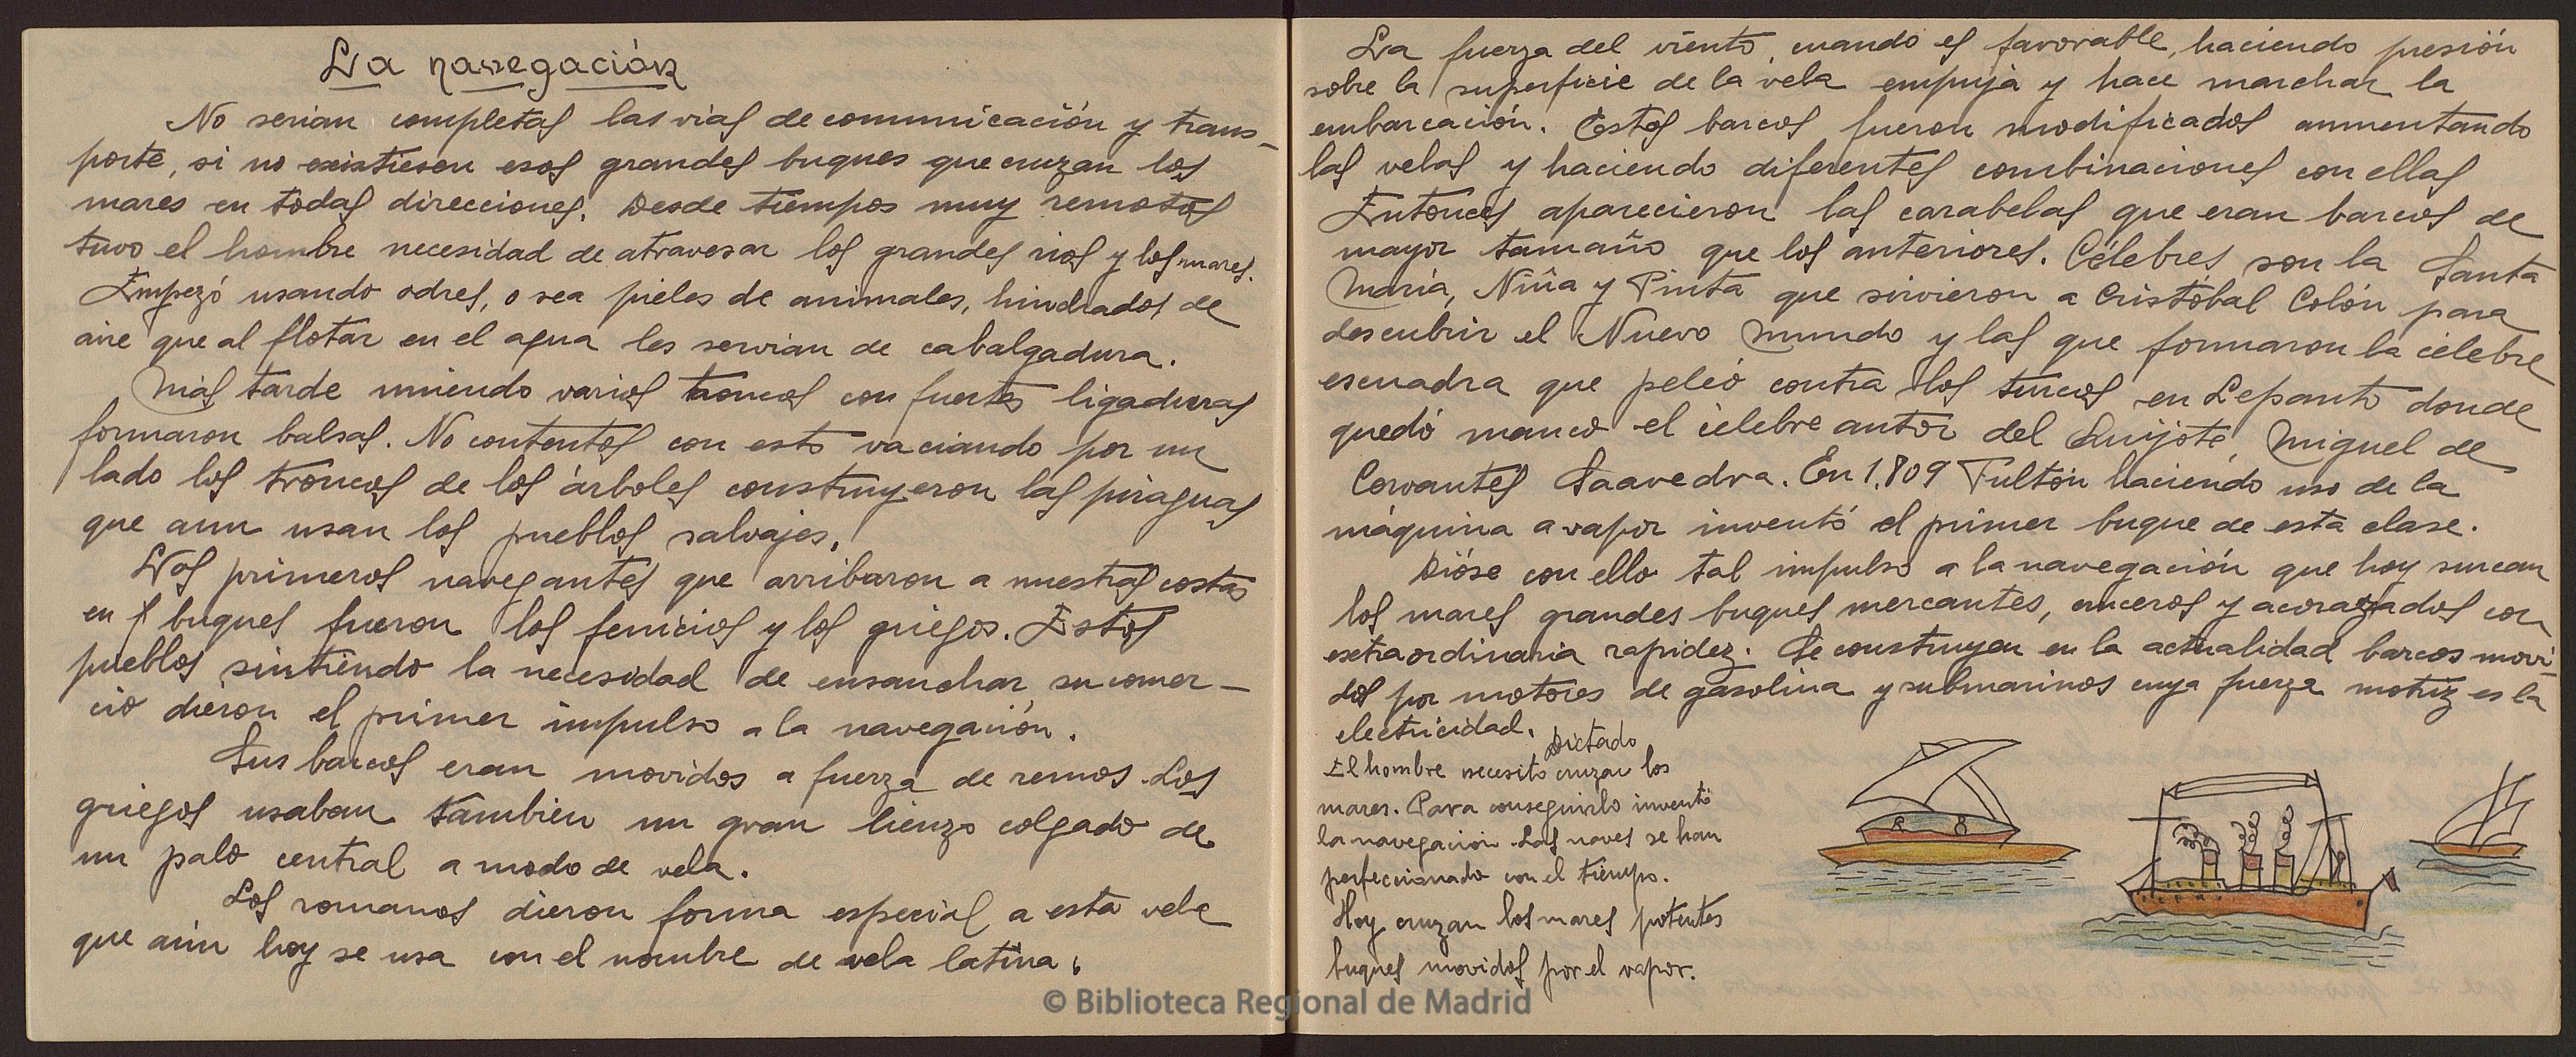 La navegación
No serian completas las vias de comunicación y trans-
porte, si no existiesen esos grandes buques que cruzan los
mares en todas direcciones. Desde tiempos muy remotos
tuvo el hombre necesidad de atravesar los grandes rios y los mares.
Empezó usando odres, o sea pieles de animales, hindrados de
aire que al flotar en el agua les servian de cabalgadura.
Más tarde uniendo varios troncos con fuertes ligaduras
formaron balsas. No contentos con esto vaciando por un
lado los troncos de los árboles construyeron las piraguas
que aun usan los pueblos salvajes.
Los primeros navegantes que arribaron a nuestras costas
en buques fueron los fenicios y los griegos. Estos
pueblos sintiendo la necesidad de ensanchar su comer-
cio dieron el primer impulso a la navegación.
Sus barcos eran movidos a fuerza de remos. Los
griegos usaban tambien un gran lienzo colgado de
un palo central a modo de vela.
Los romanos dieron forma especial a esta vela
que aún hoy se usa con el nombre de vela latina.
La fuerza del viento, cuando es favorable, haciendo presión
sobre la superficie de la vela empuja y hace marchar la
embarcación. Estos barcos fueron modificados aumentando
las velas y haciendo diferentes combinaciones con ellas
Entonces aparecieron las carabelas que eran barcos de
mayor tamaño que los anteriores. Célebres son la Santa
Maria, Niña y Pinta que sirvieron a Cristobal Colón para
descubrir el Nuevo Mundo y las que formaron la célebre
escuadra que peleó contra los turcos en Lepanto donde
quedó manco el célebre autor del Quijote, Miguel de
Cervantes Saavedra. En 1.809 Fulton haciendo uso de la
máquina a vapor inventó el primer buque de esta clase.
Dióse con ello tal impulso a la navegación que hoy surcan
los mares grandes buques mercantes, cruceros y acorazados con
extraordinaria rapidez. Se construyen en la actualidad barcos movi-
dos por motores de gasolina y submarinos cuya fuerza motriz es la
electricidad.
Dictado
El hombre necesito cruzar los
mares. Para conseguirlo inventó
la navegación. Las naves se han
perfeccionado con el tiempo.
Hoy cruzan los mares potentes
buques movidos por el vapor.
© Biblioteca Regional de Madrid